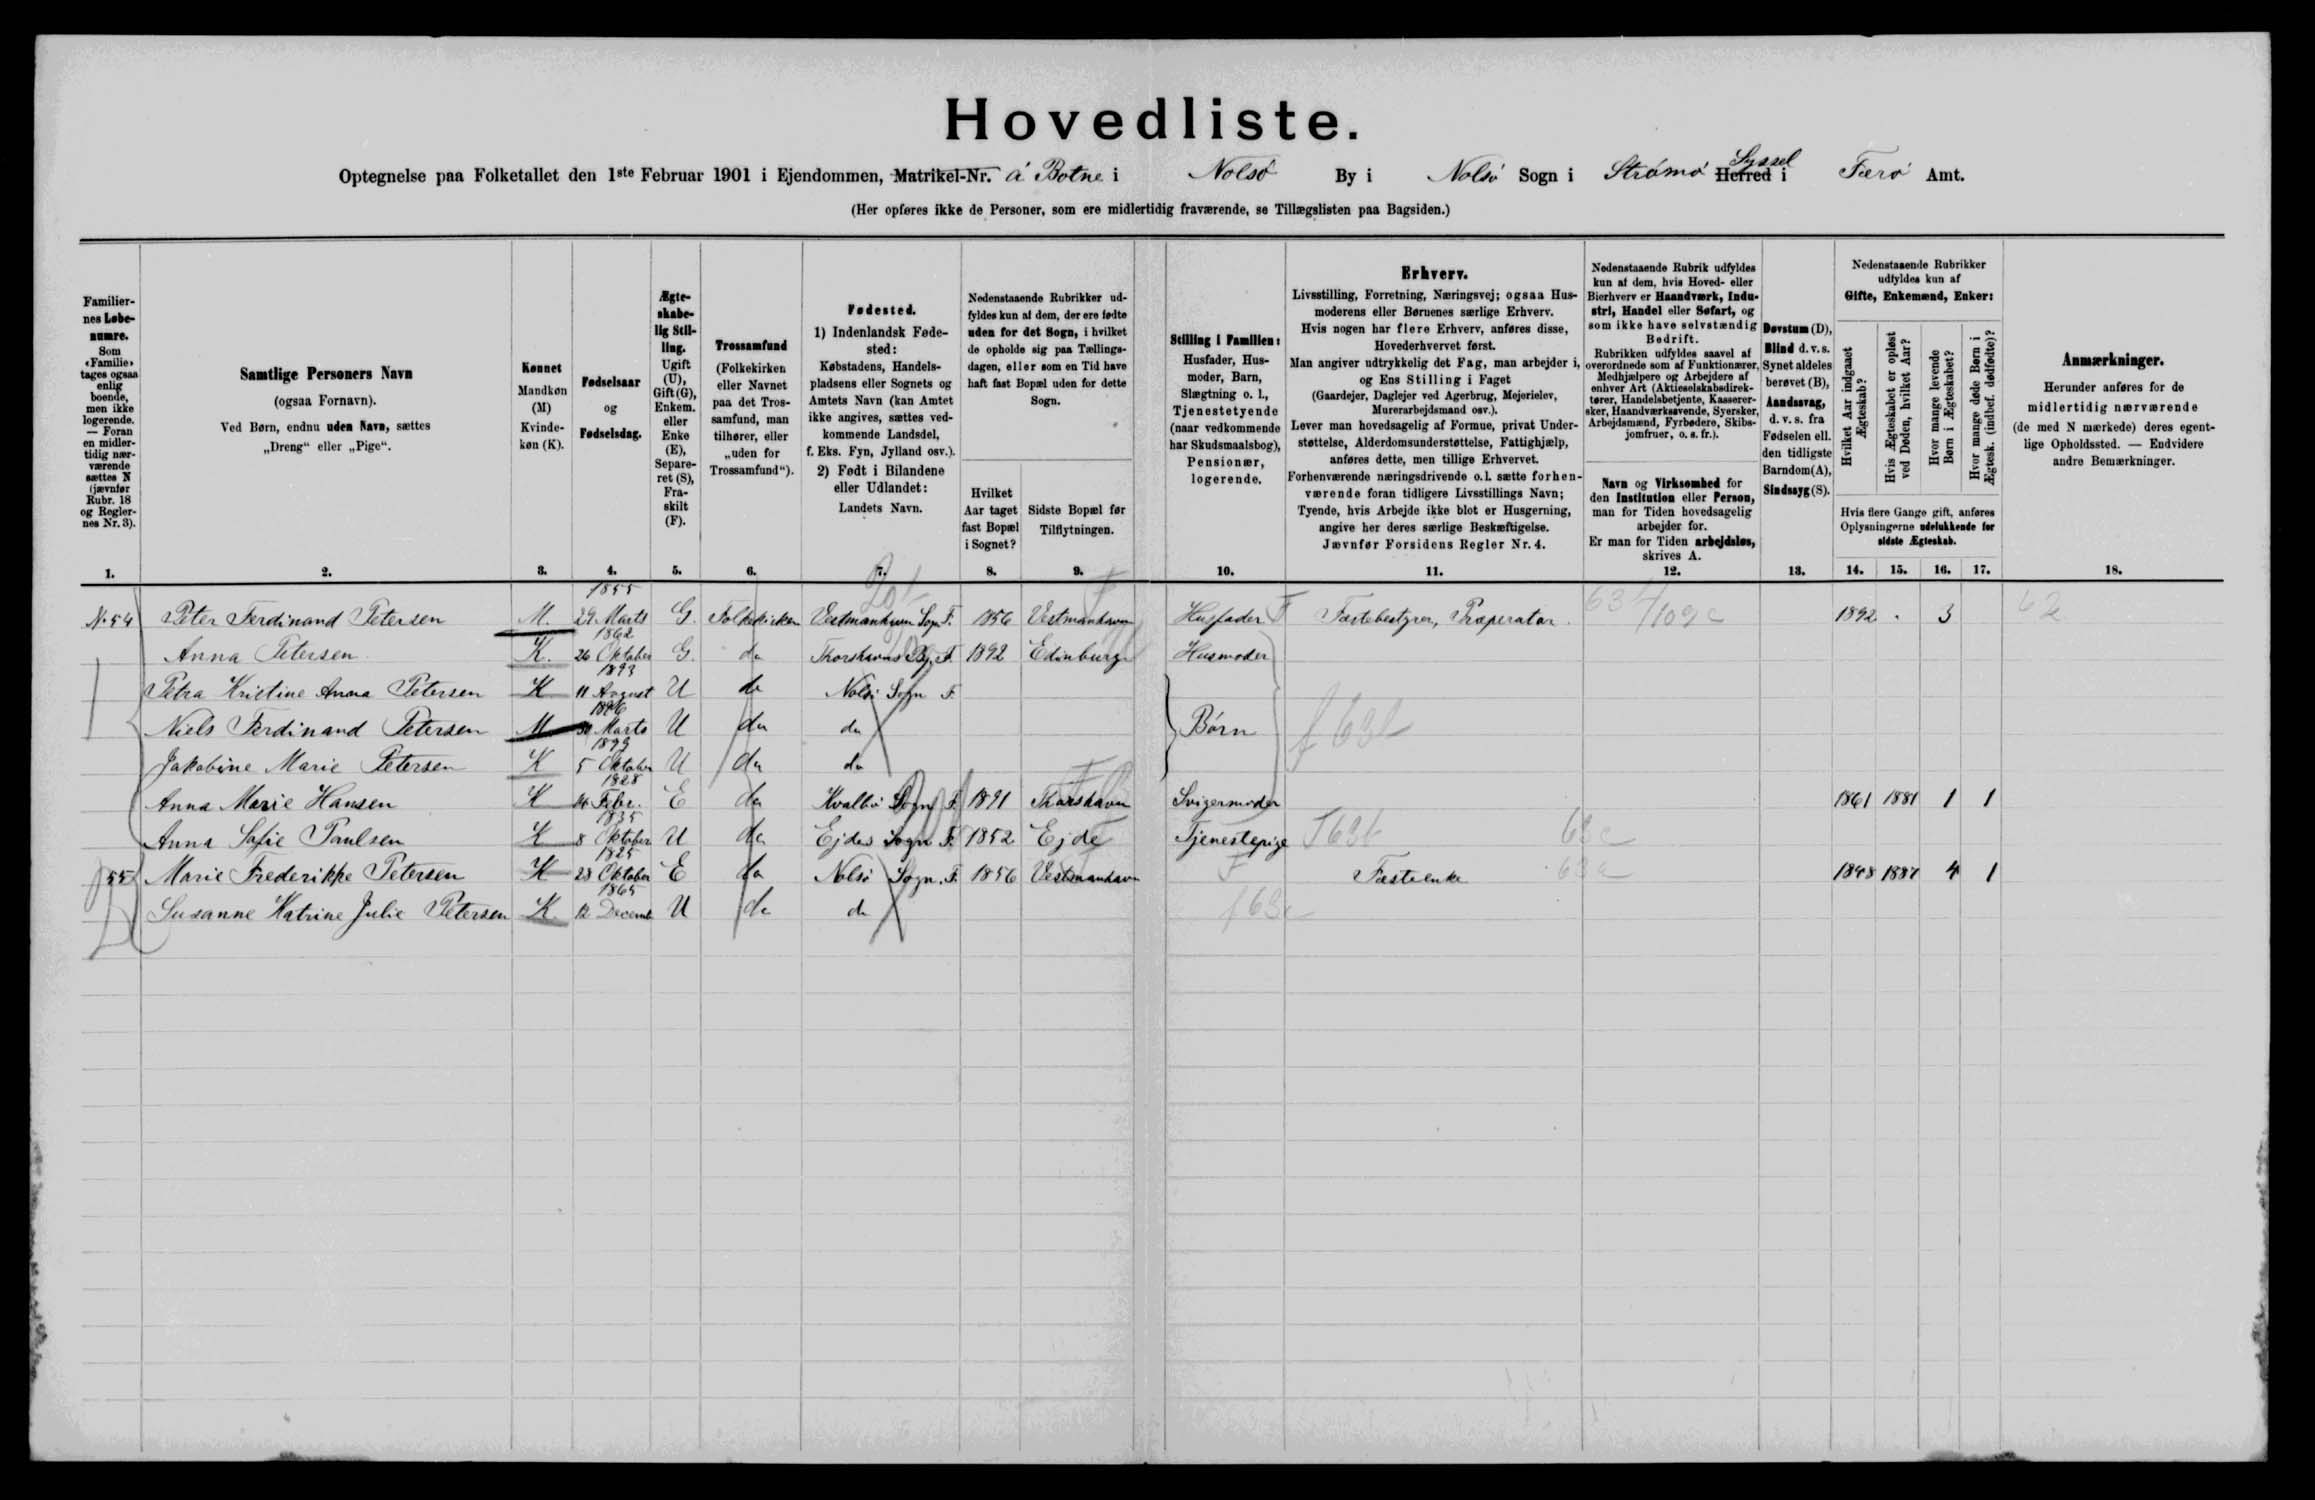 Hovedliste.
Optegnelse paa Folketallet den 1ste Februar 1901 i Ejendommen, Matrikel-Nr. á Botne i Nolsö By i Nolsö Sogn i Strömö Herred Syssel i Færö Amt.
(Her opføres ikke de Personer, som ere midlertidig fraværende, se Tillægslisten paa Bagsiden.)
Familiernes Løbenumre.
Som «Familie» tages ogsaa enlig boende, men ikke logerende. — Foran en midlertidig nærværende sættes N (jævnfør Rubr. 18 og Reglernes Nr. 3).
Samtlige Personers Navn
(ogsaa Fornavn).
Ved Børn, endnu uden Navn, sættes „Dreng“ eller „Pige“.
Kønnet
Mandkøn (M)
Kvindekøn (K).
Fødselsaar og Fødselsdag.
Ægteskabelig Stilling.
Ugift (U), Gift (G), Enkem. eller Enke (E), Separeret (S), Fraskilt (F).
Trossamfund
(Folkekirken eller Navnet paa det Trossamfund, man tilhører, eller „uden for Trossamfund“).
Fødested.
1) Indenlandsk Fødested:
Købstadens, Handelspladsens eller Sognets og Amtets Navn (kan Amtet ikke angives, sættes vedkommende Landsdel, f. Eks. Fyn, Jylland osv.).
2) Født i Bilandene eller Udlandet:
Landets Navn.
Nedenstaaende Rubrikker udfyldes kun af dem, der ere fødte uden for det Sogn, i hvilket de opholde sig paa Tællingsdagen, eller som en Tid have haft fast Bopæl uden for dette Sogn.
Hvilket Aar taget fast Bopæl i Sognet?
Sidste Bopæl før Tilflytningen.
Stilling i Familien:
Husfader, Husmoder, Barn, Slægtning o. l., Tjenestetyende (naar vedkommende har Skudsmaalsbog), Pensionær, logerende.
Erhverv.
Livsstilling, Forretning, Næringsvej; ogsaa Husmoderens eller Børnenes særlige Erhverv.
Hvis nogen har flere Erhverv, anføres disse, Hovederhvervet først.
Man angiver udtrykkelig det Fag, man arbejder i, og Ens Stilling i Faget
(Gaardejer, Daglejer ved Agerbrug, Mejerielev, Murerarbejdsmand osv.).
Lever man hovedsagelig af Formue, privat Understøttelse, Alderdomsunderstøttelse, Fattighjælp, anføres dette, men tillige Erhvervet.
Forhenværende næringsdrivende o.l. sætte forhenværende foran tidligere Livsstillings Navn;
Tyende, hvis Arbejde ikke blot er Husgerning, angive her deres særlige Beskæftigelse.
Jævnfør Forsidens Regler Nr. 4.
Nedenstaaende Rubrik udfyldes kun af dem, hvis Hoved- eller Bierhverv er Haandværk, Industri, Handel eller Søfart, og som ikke have selvstændig Bedrift.
Rubrikken udfyldes saavel af overordnede som af Funktionærer, Medhjælpere og Arbejdere af enhver Art (Aktieselskabsdirektører, Handelsbetjente, Kasserersker, Haandværkssvende, Syersker, Arbejdsmænd, Fyrbødere, Skibsjomfruer, o. s. fr.).
Navn og Virksomhed for den Institution eller Person, man for Tiden hovedsagelig arbejder for.
Er man for Tiden arbejdsløs, skrives A.
Døvstum (D), Blind d. v. s. Synet aldeles berøvet (B), Aandssvag, d. v. s. fra Fødselen ell. den tidligste Barndom (A), Sindssyg (S).
Nedenstaaende Rubrikker udfyldes kun af Gifte, Enkemænd, Enker:
Hvilket Aar indgaaet Ægteskab?
Hvis Ægteskabet er opløst ved Døden, hvilket Aar?
Hvor mange levende Børn i Ægteskabet?
Hvor mange døde Børn i Ægtesk. (indbef. dødfødte)?
Hvis flere Gange gift, anføres Oplysningerne udelukkende for sidste Ægteskab.
Anmærkninger.
Herunder anføres for de midlertidig nærværende (de med N mærkede) deres egentlige Opholdssted. — Endvidere andre Bemærkninger.
1. 2. 3. 4. 5. 6. 7. 8. 9. 10. 11. 12. 13. 14. 15. 16. 17. 18.
No 54 Peter Ferdinand Petersen M. 1855 29 Marts G. Folkekirken Vestmanhavn Sogn F. 1856 Vestmanhavn Husfader F Fæstebestyrer, Præparator. 1892 . 3
Anna Petersen K. 1862 26 Oktober G. do Thorshavns By. F. 1892 Edinburg Husmoder
Petra Kristine Anna Petersen K 1893 11 August U do Nolsö Sogn F.
Niels Ferdinand Petersen M 1896 Marts U do do Børn f 63b
Jakobine Marie Petersen K 1899 5 Oktober U do do
Anna Marie Hansen K 1828 14 Febr. E do Kvalbö Sogn F. 1891 Thorshavn Svigermoder 1861 1881 1 1
Anna Sofie Poulsen K 1835 8 Oktober U do Ejdes Sogn F. 1852 Ejde Tjenestepige T 63b 63c
55 Marie Frederikke Petersen K 1825 28 Oktober E do Nolsö Sogn. F. 1856 Vestmanhavn F Fæsteenke 63a 1848 1887 4 1
Susanne Katrine Julie Petersen K. 1865 12 Decemb U do do f 63a